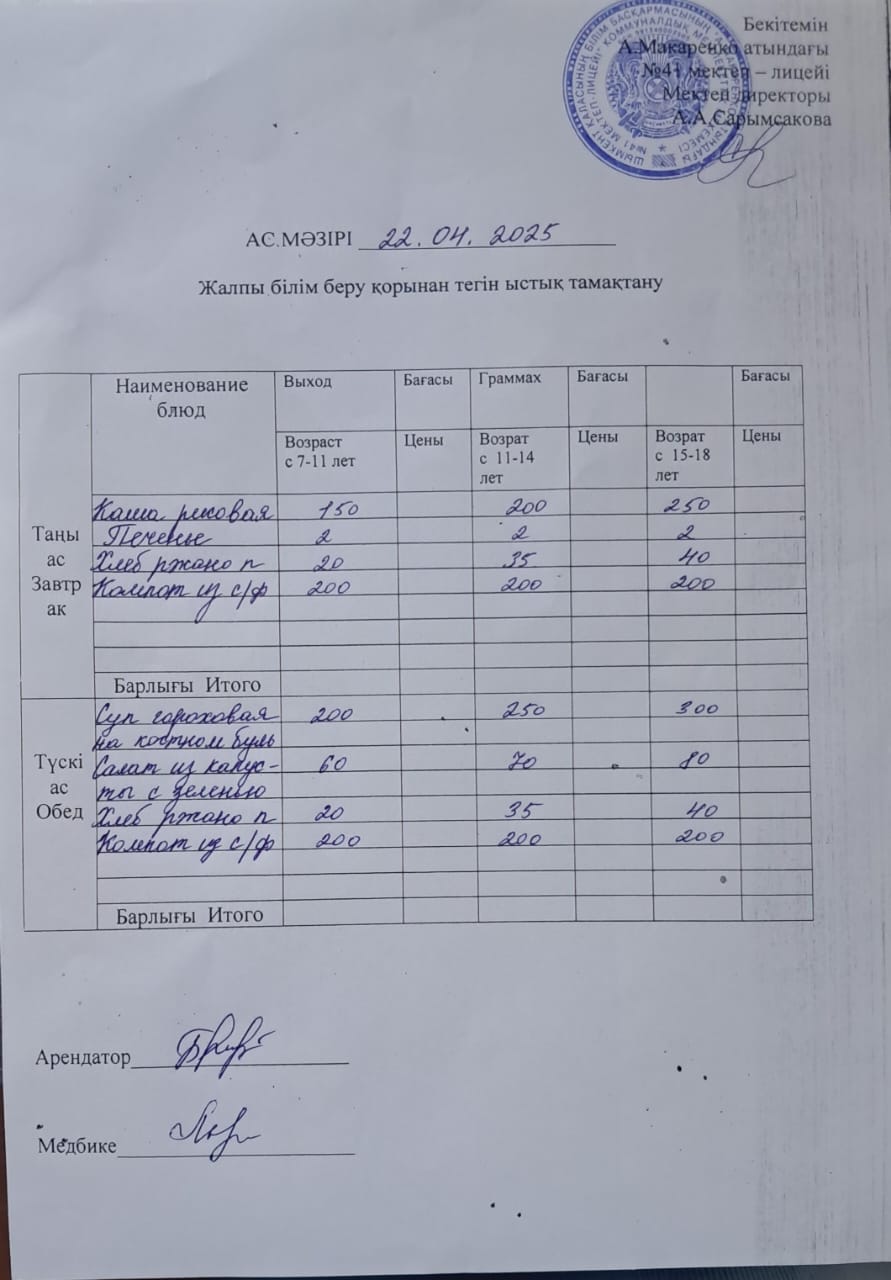 Бекітемін
А.Макаренко атындағы
№41 мектеп – лицейі
Мектеп директоры
А.А.Сарымсакова
АС.МӘЗІРІ 22.04.2025
Жалпы білім беру қорынан тегін ыстық тамақтану
Наименование блюд Выход Бағасы Граммах Бағасы Бағасы
Возраст с 7-11 лет Цены Возрат с 11-14 лет Цены Возрат с 15-18 лет Цены
Таңы ас Завтр ак
Каша рисовая 150 200 250
Печенье 2 2 2
Хлеб ржано п 20 35 40
Компот из с/ф 200 200 200
Барлығы Итого
Түскі ас Обед
Суп гороховая 200 250 300
на костном буль
Салат из капус- 60 70 80
ты с зеленью
Хлеб ржано п 20 35 40
Компот из с/ф 200 200 200
Барлығы Итого
Арендатор
Медбике